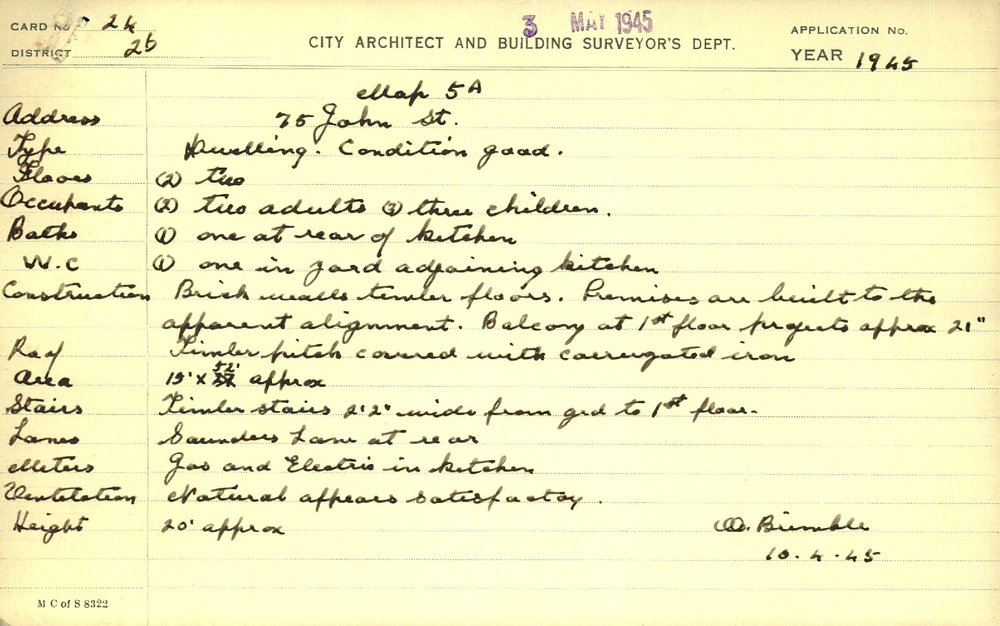 CARD No 24
DISTRICT 2b
3 MAY 1945
CITY ARCHITECT AND BUILDING SURVEYOR'S DEPT.
APPLICATION No.
YEAR 1945
Map 5A
Address 75 John St.
Type Dwelling. Condition good.
Floors (2) two
Occupants (2) two adults (3) three children.
Baths (1) one at rear of kitchen
W.C (1) one in yard adjoining kitchen
Construction Brick walls timber floors. Premises are built to the
apparent alignment. Balcony at 1st floor projects approx 21"
Roof Timber pitch covered with corrugated iron
Area 15' x 52' approx
Stairs Timber stairs 2'2" wide from grd to 1st floor.
Lanes Saunders Lane at rear
Meters Gas and Electric in kitchen
Ventilation Natural appears satisfactoy.
Height 20' approx
Brimble
10.4.45
M C of S 8322